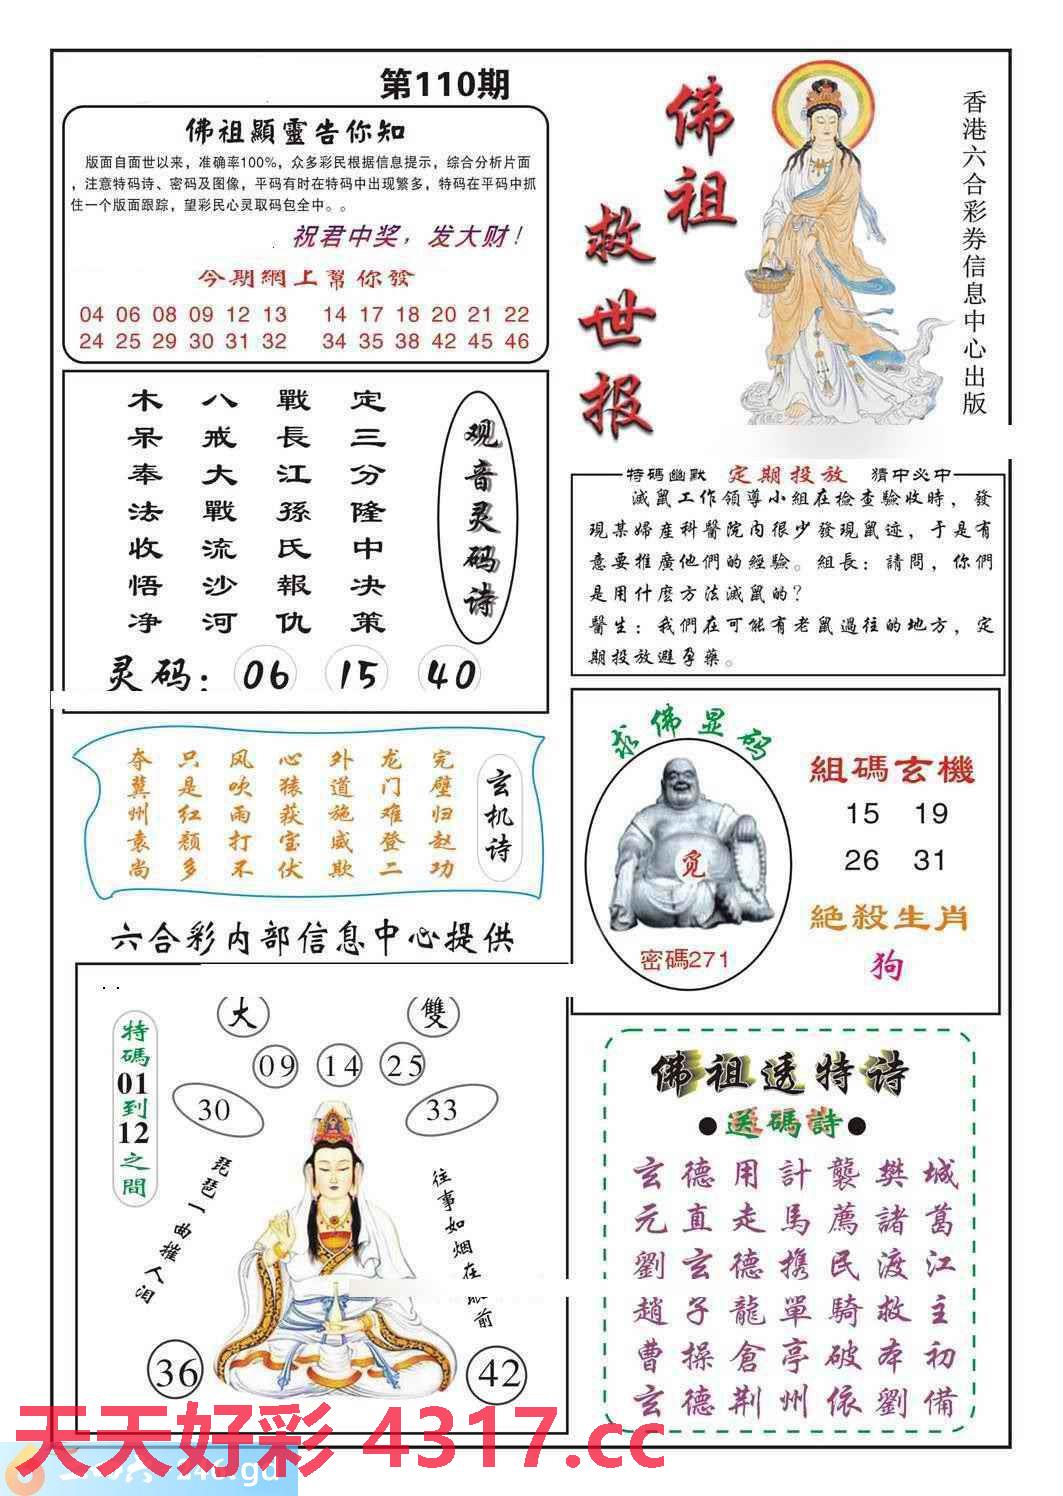 第110期
佛祖顯靈告你知
版面自面世以来，准确率100%，众多彩民根据信息提示，综合分析片面
，注意特码诗、密码及图像，平码有时在特码中出现繁多，特码在平码中抓
住一个版面跟踪，望彩民心灵取码包全中。。
祝君中奖，发大财！
今期網上幫你發
04 06 08 09 12 13 14 17 18 20 21 22
24 25 29 30 31 32 34 35 38 42 45 46
佛祖
救世报
香港六合彩券信息中心出版
观音灵码诗
定三分隆中决策
戰長江孫氏報仇
八戒大戰流沙河
木呆奉法收悟净
灵码：06 15 40
特碼幽默 定期投放 猜中必中
滅鼠工作领導小組在檢查驗收時，發
現某婦産科醫院内很少發現鼠迹，于是有
意要推廣他們的經驗。組長：請問，你們
是用什麼方法滅鼠的？
醫生：我們在可能有老鼠過往的地方，定
期投放避孕藥。
玄机诗
完璧归赵功
龙门难登二
外道施威欺
心猿获宝伏
风吹雨打不
只是红颜多
夺冀州袁尚
求佛显码
觅
密碼271
組碼玄機
15 19
26 31
絶殺生肖
狗
六合彩内部信息中心提供
大
雙
特碼01到12之間
09 14 25
30
33
琵琶一曲摧人泪
往事如烟在眼前
36
42
佛祖透特诗
●送碼詩●
玄德用計襲樊城
元直走馬薦諸葛
劉玄德携民渡江
趙子龍單騎救主
曹操倉亭破本初
玄德荆州依劉備
天天好彩 4317.cc
246.gd